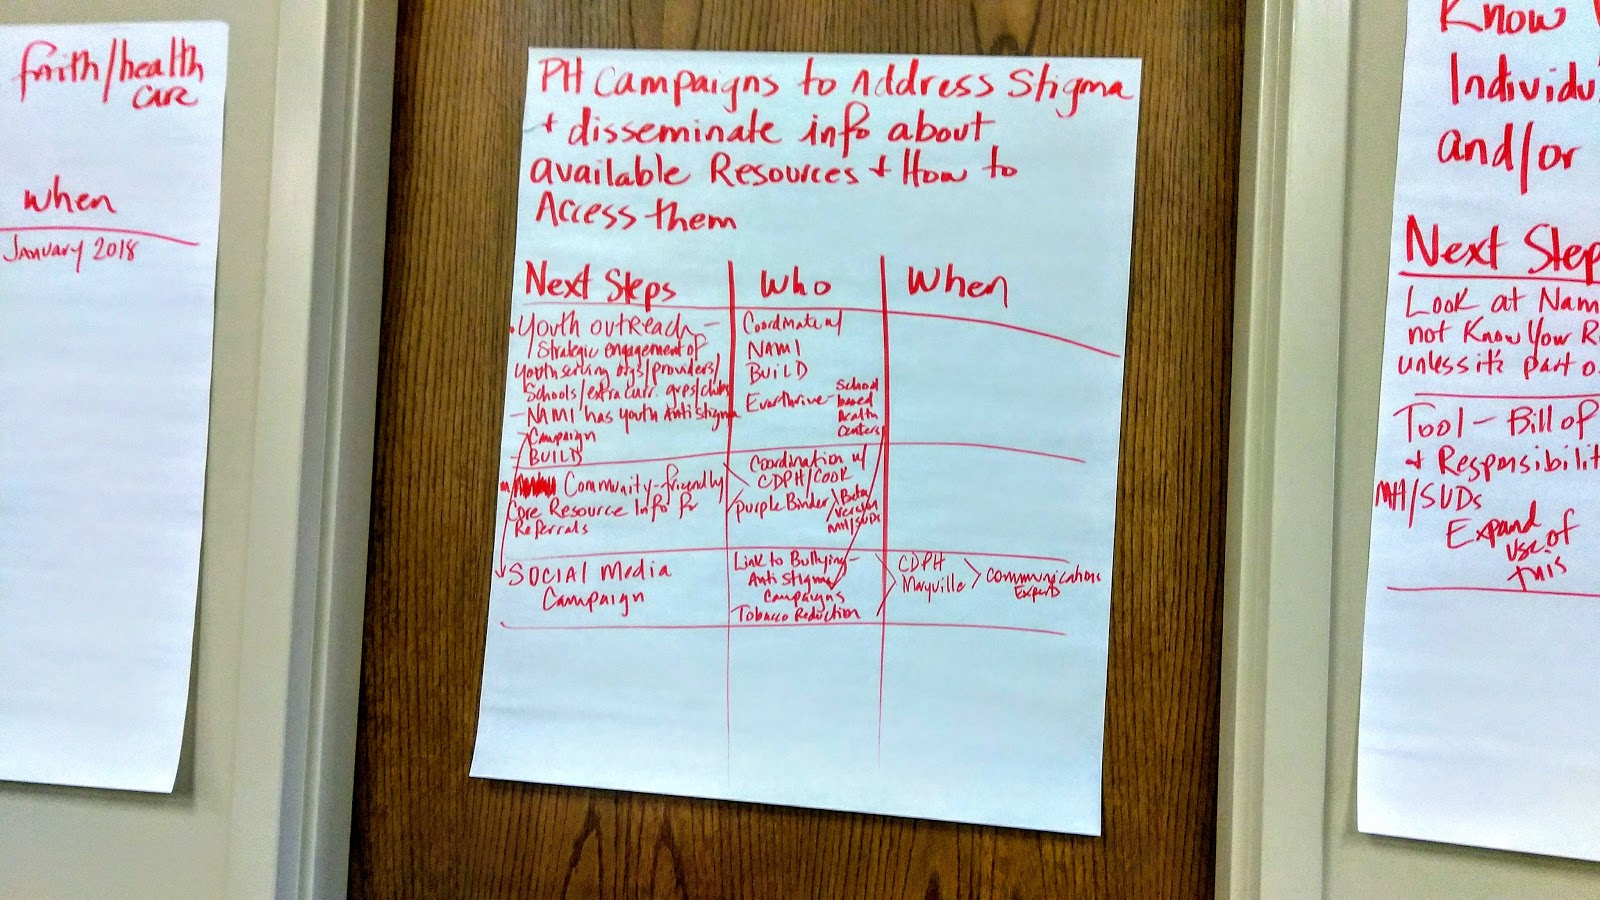 faith/health
care
when
January 2018
PH Campaigns to Address Stigma
+ disseminate info about
available Resources + How to
Access them
Next Steps
Who
When
• Youth outreach –
Strategic engagement of
Youth serving orgs/providers/
Schools/extra curr. grps/clubs
– NAMI has youth Anti Stigma
Campaign
– BUILD
Coordinate w/
NAMI
BUILD
Everthrive – School
based
Health
Centers
Community-friendly
Core Resource Info for
Referrals
Coordination w/
CDPH/COOK
Purple Binder
Beta
Version
MH/SUDs
SOCIAL Media
Campaign
Link to Bullying –
Anti Stigma
Campaigns
Tobacco Reduction
CDPH
Maryville
Communications
Experts
Know
Individu
and/or
Next Step
Look at Nam
not Know Your R
unless it's part o
Tool – Bill of
+ Responsibilit
MH/SUDs
Expand
use of
this